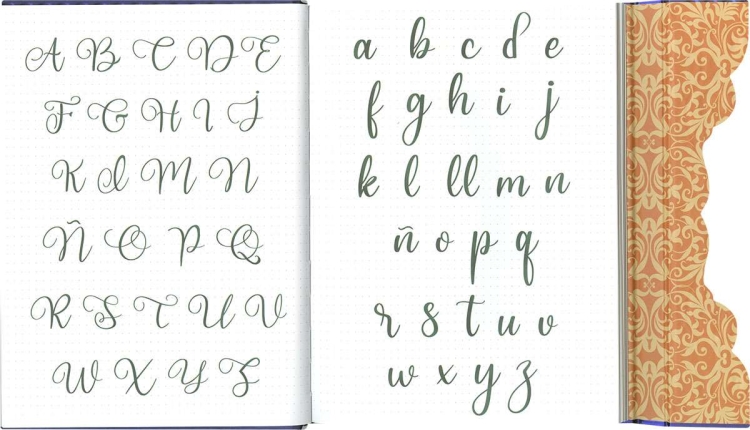 A B C D E
F G H I J
K L M N
Ñ O P Q
R S T U V
W X Y Z
a b c d e
f g h i j
k l ll m n
ñ o p q
r s t u v
w x y z